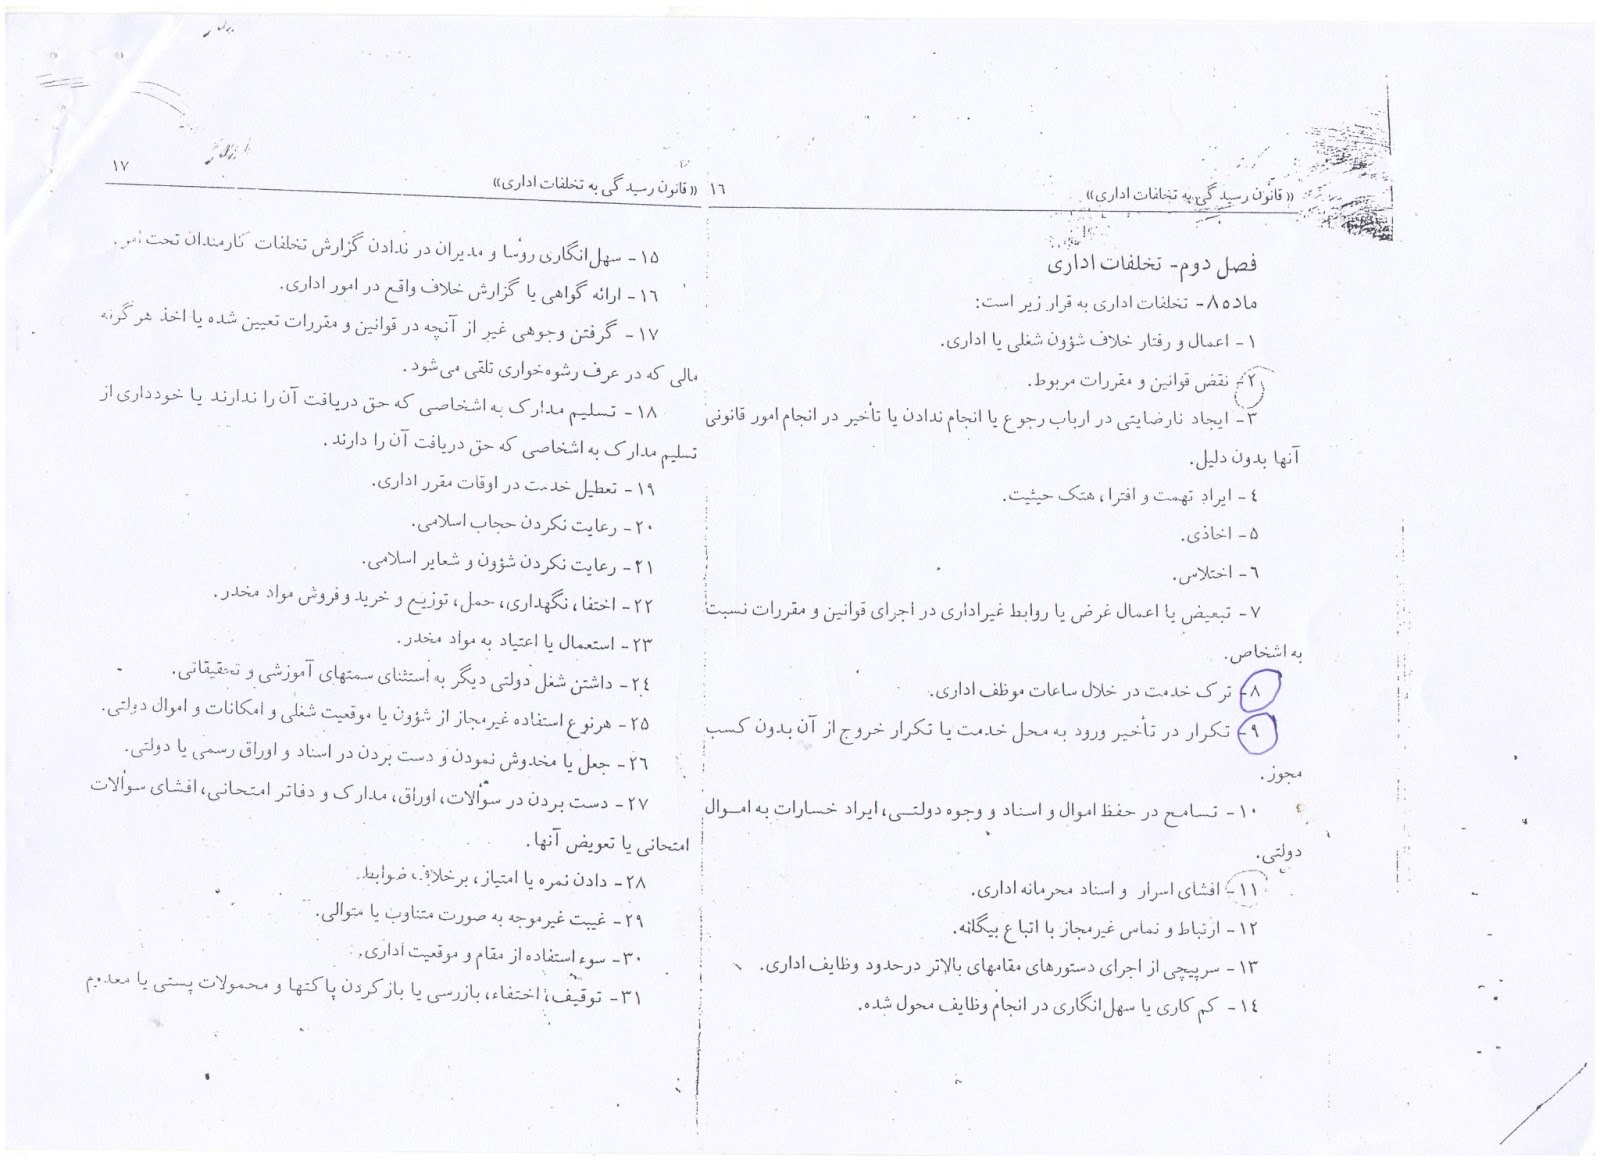 «قانون رسیدگی به تخلفات اداری» ١٦
فصل دوم- تخلفات اداری
ماده ٨- تخلفات اداری به قرار زیر است:
١- اعمال و رفتار خلاف شؤون شغلی یا اداری.
٢- نقض قوانین و مقررات مربوط.
٣- ایجاد نارضایتی در ارباب رجوع یا انجام ندادن یا تأخیر در انجام امور قانونی
آنها بدون دلیل.
٤- ایراد تهمت و افترا، هتک حیثیت.
٥- اخاذی.
٦- اختلاس.
٧- تبعیض یا اعمال غرض یا روابط غیراداری در اجرای قوانین و مقررات نسبت
به اشخاص.
٨- ترک خدمت در خلال ساعات موظف اداری.
٩- تکرار در تأخیر ورود به محل خدمت یا تکرار خروج از آن بدون کسب
مجوز.
١٠- تسامح در حفظ اموال و اسناد و وجوه دولتی، ایراد خسارات به اموال
دولتی.
١١- افشای اسرار و اسناد محرمانه اداری.
١٢- ارتباط و تماس غیرمجاز با اتباع بیگانه.
١٣- سرپیچی از اجرای دستورهای مقامهای بالاتر درحدود وظایف اداری.
١٤- کم کاری یا سهل‌انگاری در انجام وظایف محول شده.
«قانون رسیدگی به تخلفات اداری» ١٧
١٥- سهل‌انگاری رؤسا و مدیران در ندادن گزارش تخلفات کارمندان تحت امر.
١٦- ارائه گواهی یا گزارش خلاف واقع در امور اداری.
١٧- گرفتن وجوهی غیر از آنچه در قوانین و مقررات تعیین شده یا اخذ هر گونه
مالی که در عرف رشوه‌خواری تلقی می‌شود.
١٨- تسلیم مدارک به اشخاصی که حق دریافت آن را ندارند یا خودداری از
تسلیم مدارک به اشخاصی که حق دریافت آن را دارند.
١٩- تعطیل خدمت در اوقات مقرر اداری.
٢٠- رعایت نکردن حجاب اسلامی.
٢١- رعایت نکردن شؤون و شعایر اسلامی.
٢٢- اختفا، نگهداری، حمل، توزیع و خرید و فروش مواد مخدر.
٢٣- استعمال یا اعتیاد به مواد مخدر.
٢٤- داشتن شغل دولتی دیگر به استثنای سمتهای آموزشی و تحقیقاتی.
٢٥- هرنوع استفاده غیرمجاز از شؤون یا موقعیت شغلی و امکانات و اموال دولتی.
٢٦- جعل یا مخدوش نمودن و دست بردن در اسناد و اوراق رسمی یا دولتی.
٢٧- دست بردن در سؤالات، اوراق، مدارک و دفاتر امتحانی، افشای سؤالات
امتحانی یا تعویض آنها.
٢٨- دادن نمره یا امتیاز، برخلاف ضوابط.
٢٩- غیبت غیرموجه به صورت متناوب یا متوالی.
٣٠- سوء استفاده از مقام و موقعیت اداری.
٣١- توقیف، اختفاء، بازرسی یا بازکردن پاکتها و محمولات پستی یا معدوم